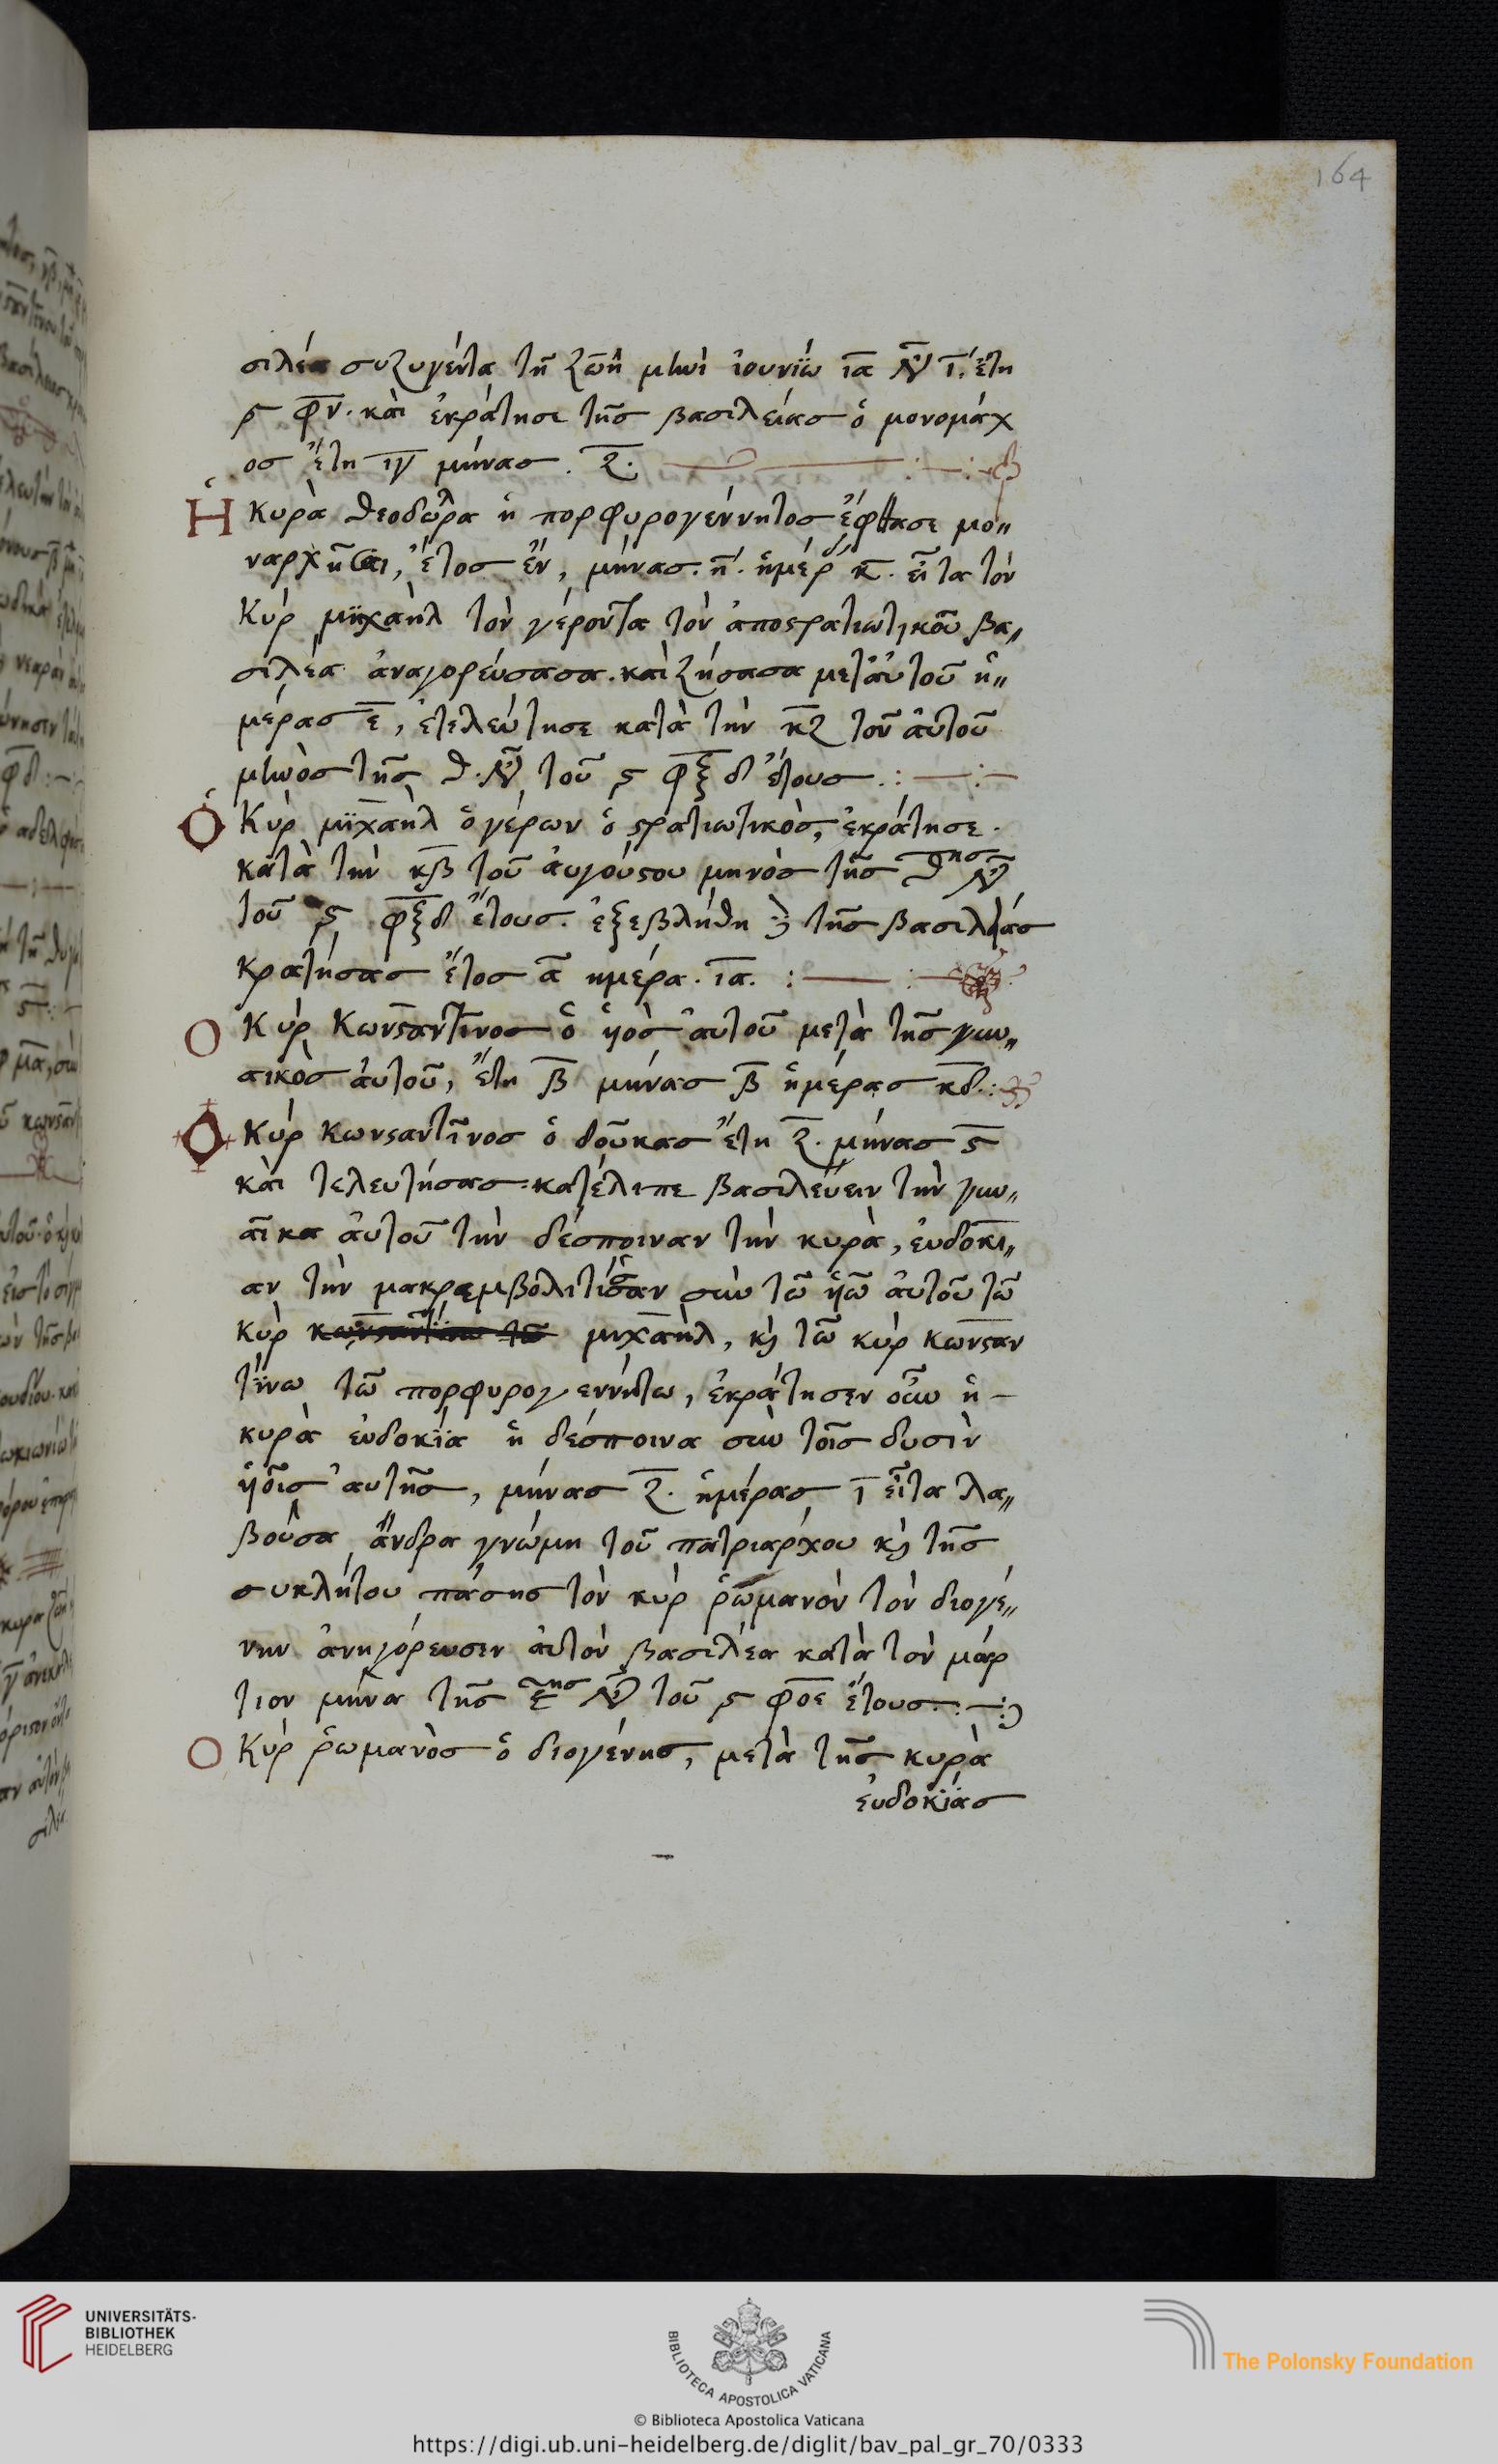 164
σιλέα συζυγέντα τῆ ζωῆ μηνὶ ἰουνΐω ια Ν ι. ἔτη
ς φν. καὶ ἐκράτησε τῆς βασιλείας ὁ μονομάχ
ος ἔτη ιγ μῆνας. ζ.
Ἡ κυρὰ θεοδώρα ἡ πορφυρογέννητος ἔφθασε μο„
ναρχῆσαι, ἔτος ἓν, μήνας. η. ἡμέρ κ. εἶτα τὸν
κὺρ μϊχαὴλ τὸν γέροντα τὸν ἀποστρατιωτικοῦ βα„
σιλέα ἀναγορεύσασα. καὶ ζήσασα μετ' αὐτοῦ ἡ„
μέρας ε, ἐτελεύτησε κατὰ τὴν κζ τοῦ αὐτοῦ
μηνὸς τῆς θ. Ν τοῦ ς φξδ ἔτους.
Ὁ Κὺρ μϊχαὴλ ὁ γέρων ὁ στρατιωτικὸς, ἐκράτησε.
κατὰ τὴν κβ τοῦ ἀυγούστου μηνὸς τῆς θ ης Ν
τοῦ ς φξδ ἔτους. ἐξεβλήθη δὲ τῆς βασιλείας
κρατήσας ἔτος α ημέρα. ια.
Ο Κὺρ Κωνσταντῖνος ὁ ὑιὸς αὐτοῦ μετὰ τῆς γυν„
αικὸς ἀυτοῦ, ἔτη β μήνας β ἡμέρας κδ.
Ὁ Κὺρ Κωνσταντῖνος ὁ δοῦκας ἔτη ζ. μήνας ς
καὶ τελευτήσας κατέλιπε βασιλεύειν τὴν γυν„
αῖκα ἀυτοῦ τὴν δέσποιναν τὴν κυρὰ, ἐυδοκι„
αν τὴν μακρεμβολίτισσαν σὺν τῶ ὑιῶ ἀυτοῦ τῶ
κὺρ μιχαὴλ, κὶ τῶ κὺρ κωνσταν
τίνω τῶ πορφυρογεννήτω, ἐκράτησεν οὖν ἡ
κυρὰ ἐυδοκΐα ἡ δέσποινα σὺν τοῖς δυσὶν
ὑιοῖς αὐτῆς, μήνας ζ. ἡμέρας ι εἶτα λα„
βοῦσα ἄνδρα γνώμη τοῦ πατριάρχου κὶ τῆς
συκλήτου πάσης τὸν κὺρ ῥωμανὸν τὸν διογέ„
νην ἀνηγόρευσεν ἀυτὸν βασιλέα κατὰ τὸν μάρ
τιον μῆνα τῆς ε ης Ν τοῦ ς φοε ἔτους.
Ο Κὺρ ῥωμανὸς ὁ διογένης, μετὰ τῆς κυρὰ
ἐυδοκΐας
UNIVERSITÄTS-
BIBLIOTHEK
HEIDELBERG
BIBLIOTECA APOSTOLICA VATICANA
The Polonsky Foundation
© Biblioteca Apostolica Vaticana
https://digi.ub.uni-heidelberg.de/diglit/bav_pal_gr_70/0333